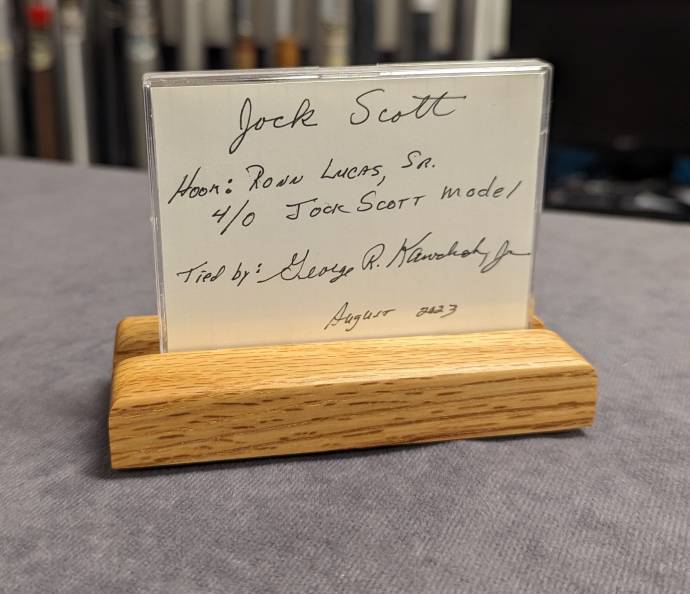 Jock Scott
Hook: Ronn Lucas, Sr.
4/0 Jock Scott model
Tied by: George R. Jr
August 2023